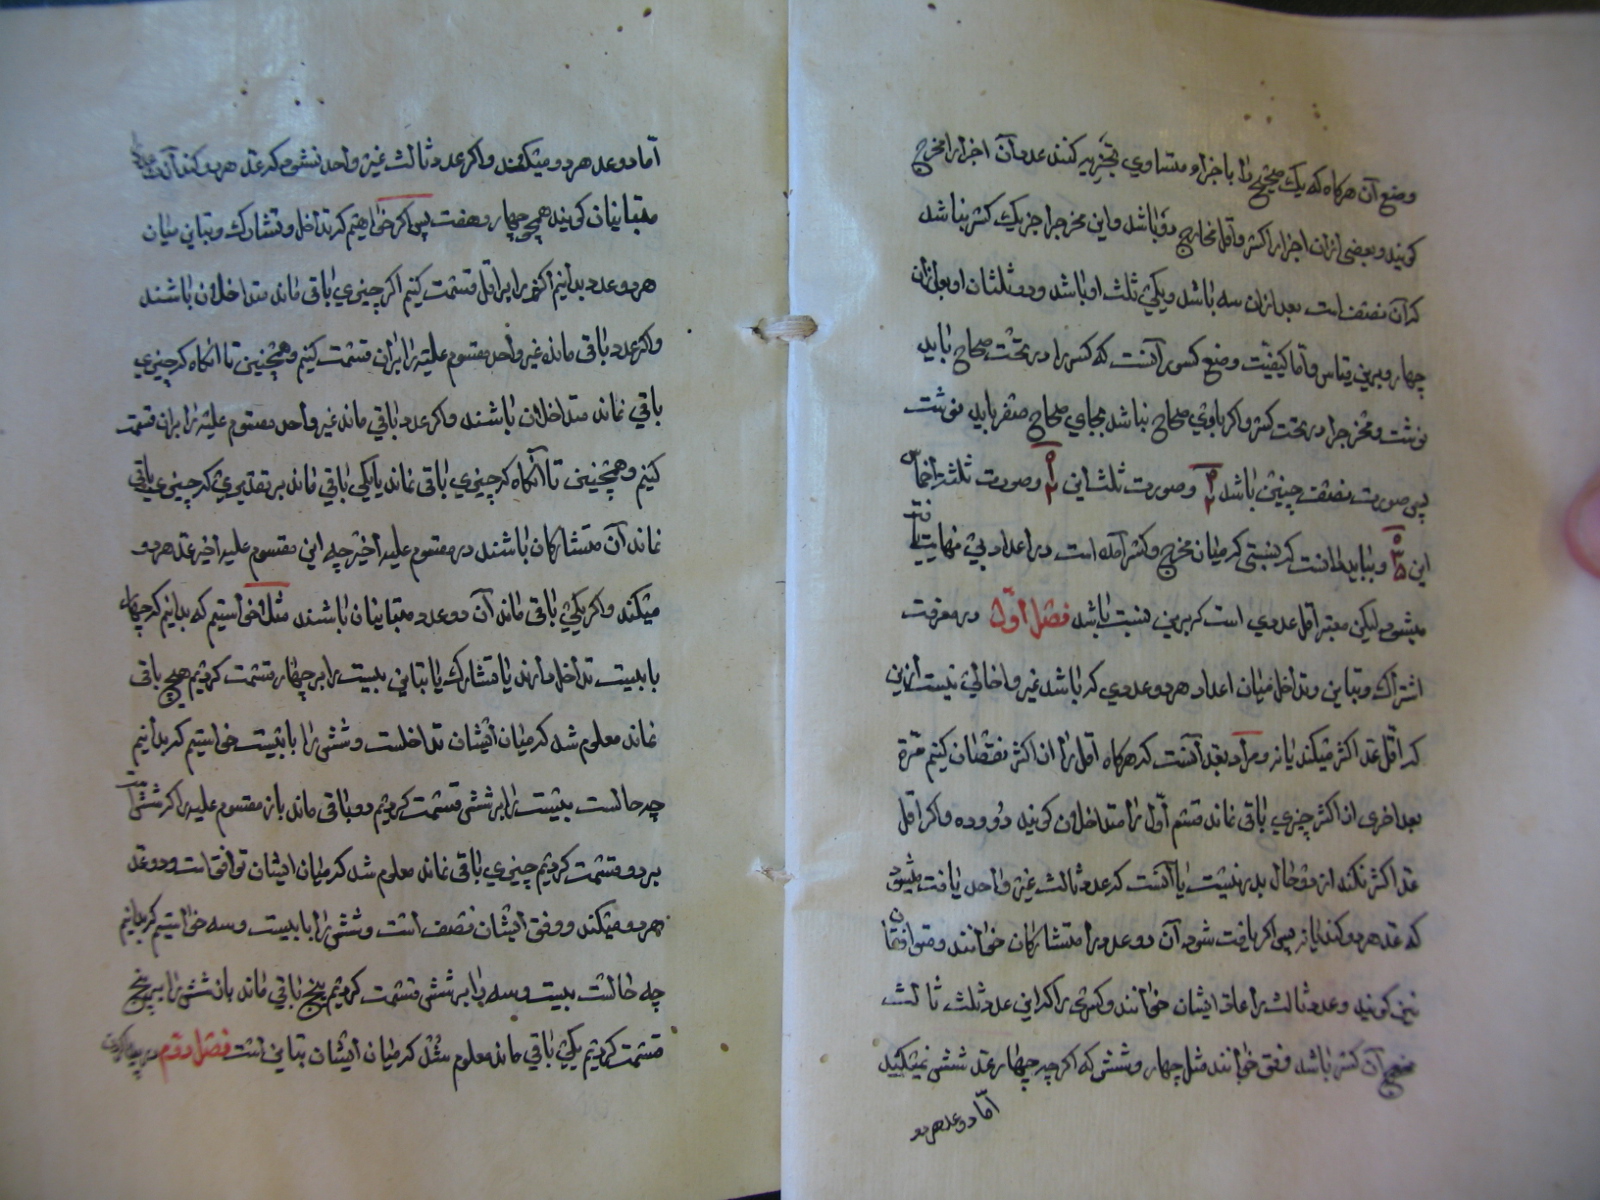 وضع آن هرکاه که یک صحیح را باجزاء متساوی تجزیه کنند عدد آن اجزا را مخرج
کویند و بعضی ازان اجزا را کسر و اقل مخارج دو باشد و این مخرج را جز یک کسر نباشد
که آن نصف است بعد ازان سه باشد و یکی ثلث او باشد و دو ثلثان او بعد ازان
چهار و برین قیاس و اما کیفیت وضع کسر آنست که کسر را در تحت صحاح باید
نوشت و مخرج را در تحت کسر و اکر باوی صحاح نباشد بجای صحاح صفر باید نوشت
پس صورت نصف چنین باشد و صورت ثلث این و صورت ثلثة اخماس
این و بباید دانست که نسبتی که میان مخرج و کسر آمده است در اعداد بی نهایت یافت
میشود لیکن معتبر اقل عددی است که برین نسبت باشد فصل اول در معرفت
اشتراک و تباین و تداخل میان اعداد هر دو عددی که باشد غیر واحد خالی نیست ازین
که اقل عد اکثر میکند یا نه و مراد بعد آنست که هرکاه اقل را از اکثر نقصان کنیم مرة
بعد اخری از اکثر چیزی باقی نماند قسم اول را متداخلان کویند دو و ده و اکر اقل
عد اکثر نکند از دو حال بدر نیست یا آنست که عدد ثالث غیر واحد یافت میشود
که عد هر دو کند یا نه پس اکر یافت شود آن دو عدد را متشارکان خوانند و متوافقان
نیز کویند و عدد ثالث را عاد ایشان خوانند و کسری را که این عدد ثالث
مخرج آن کسر باشد وفق خوانند مثل چهار و شش که اکر چه چهار عد شش نمیکند
اما دو عد هر دو
اما دو عد هر دو میکند و اکر عدد ثالث غیر واحد نشود که عد هر دو کند آن
متباینان کویند همچو چهار و هفت پس اکر خواهیم که تداخل و تشارک و تباین میان
هر دو عدد بدانیم اکثر را بر اقل قسمت کنیم اکر چیزی باقی نماند متداخلان باشند
و اکر عدد باقی ماند غیر واحد مقسوم علیه را بران قسمت کنیم و همچنین تا آنکاه که چیزی
باقی نماند متداخلان باشند و اکر عدد باقی ماند غیر واحد مقسوم علیه را بران قسمت
کنیم و همچنین تا آنکاه که چیزی باقی نماند یا یکی باقی ماند بر تقدیری که چیزی باقی
نماند آن متشارکان باشند در مقسوم علیه اخیر چه این مقسوم علیه اخیر عد هر دو
میکند و اکر یکی باقی ماند آن دو عدد متباینان باشند مثلا خواستیم که بدانیم که چهار
با بیست تداخل دارند یا تشارک یا تباین بیست را بر چهار قسمت کردیم هیچ باقی
نماند معلوم شد که میان ایشان تداخلست و شش را با بیست خواستیم که بدانیم
چه حالست بیست را بر شش قسمت کردیم دو باقی ماند باز مقسوم علیه را که شش است
بر دو قسمت کردیم چیزی باقی نماند معلوم شد که میان ایشان توافق است و دو عد
هر دو میکند و وفق ایشان نصف است و شش را با بیست و سه خواستیم که بدانیم
چه حالست بیست و سه را بر شش قسمت کردیم پنج باقی ماند باز شش را بر پنج
قسمت کردیم یکی باقی ماند معلوم شد که میان ایشان تباین است فصل دوم در